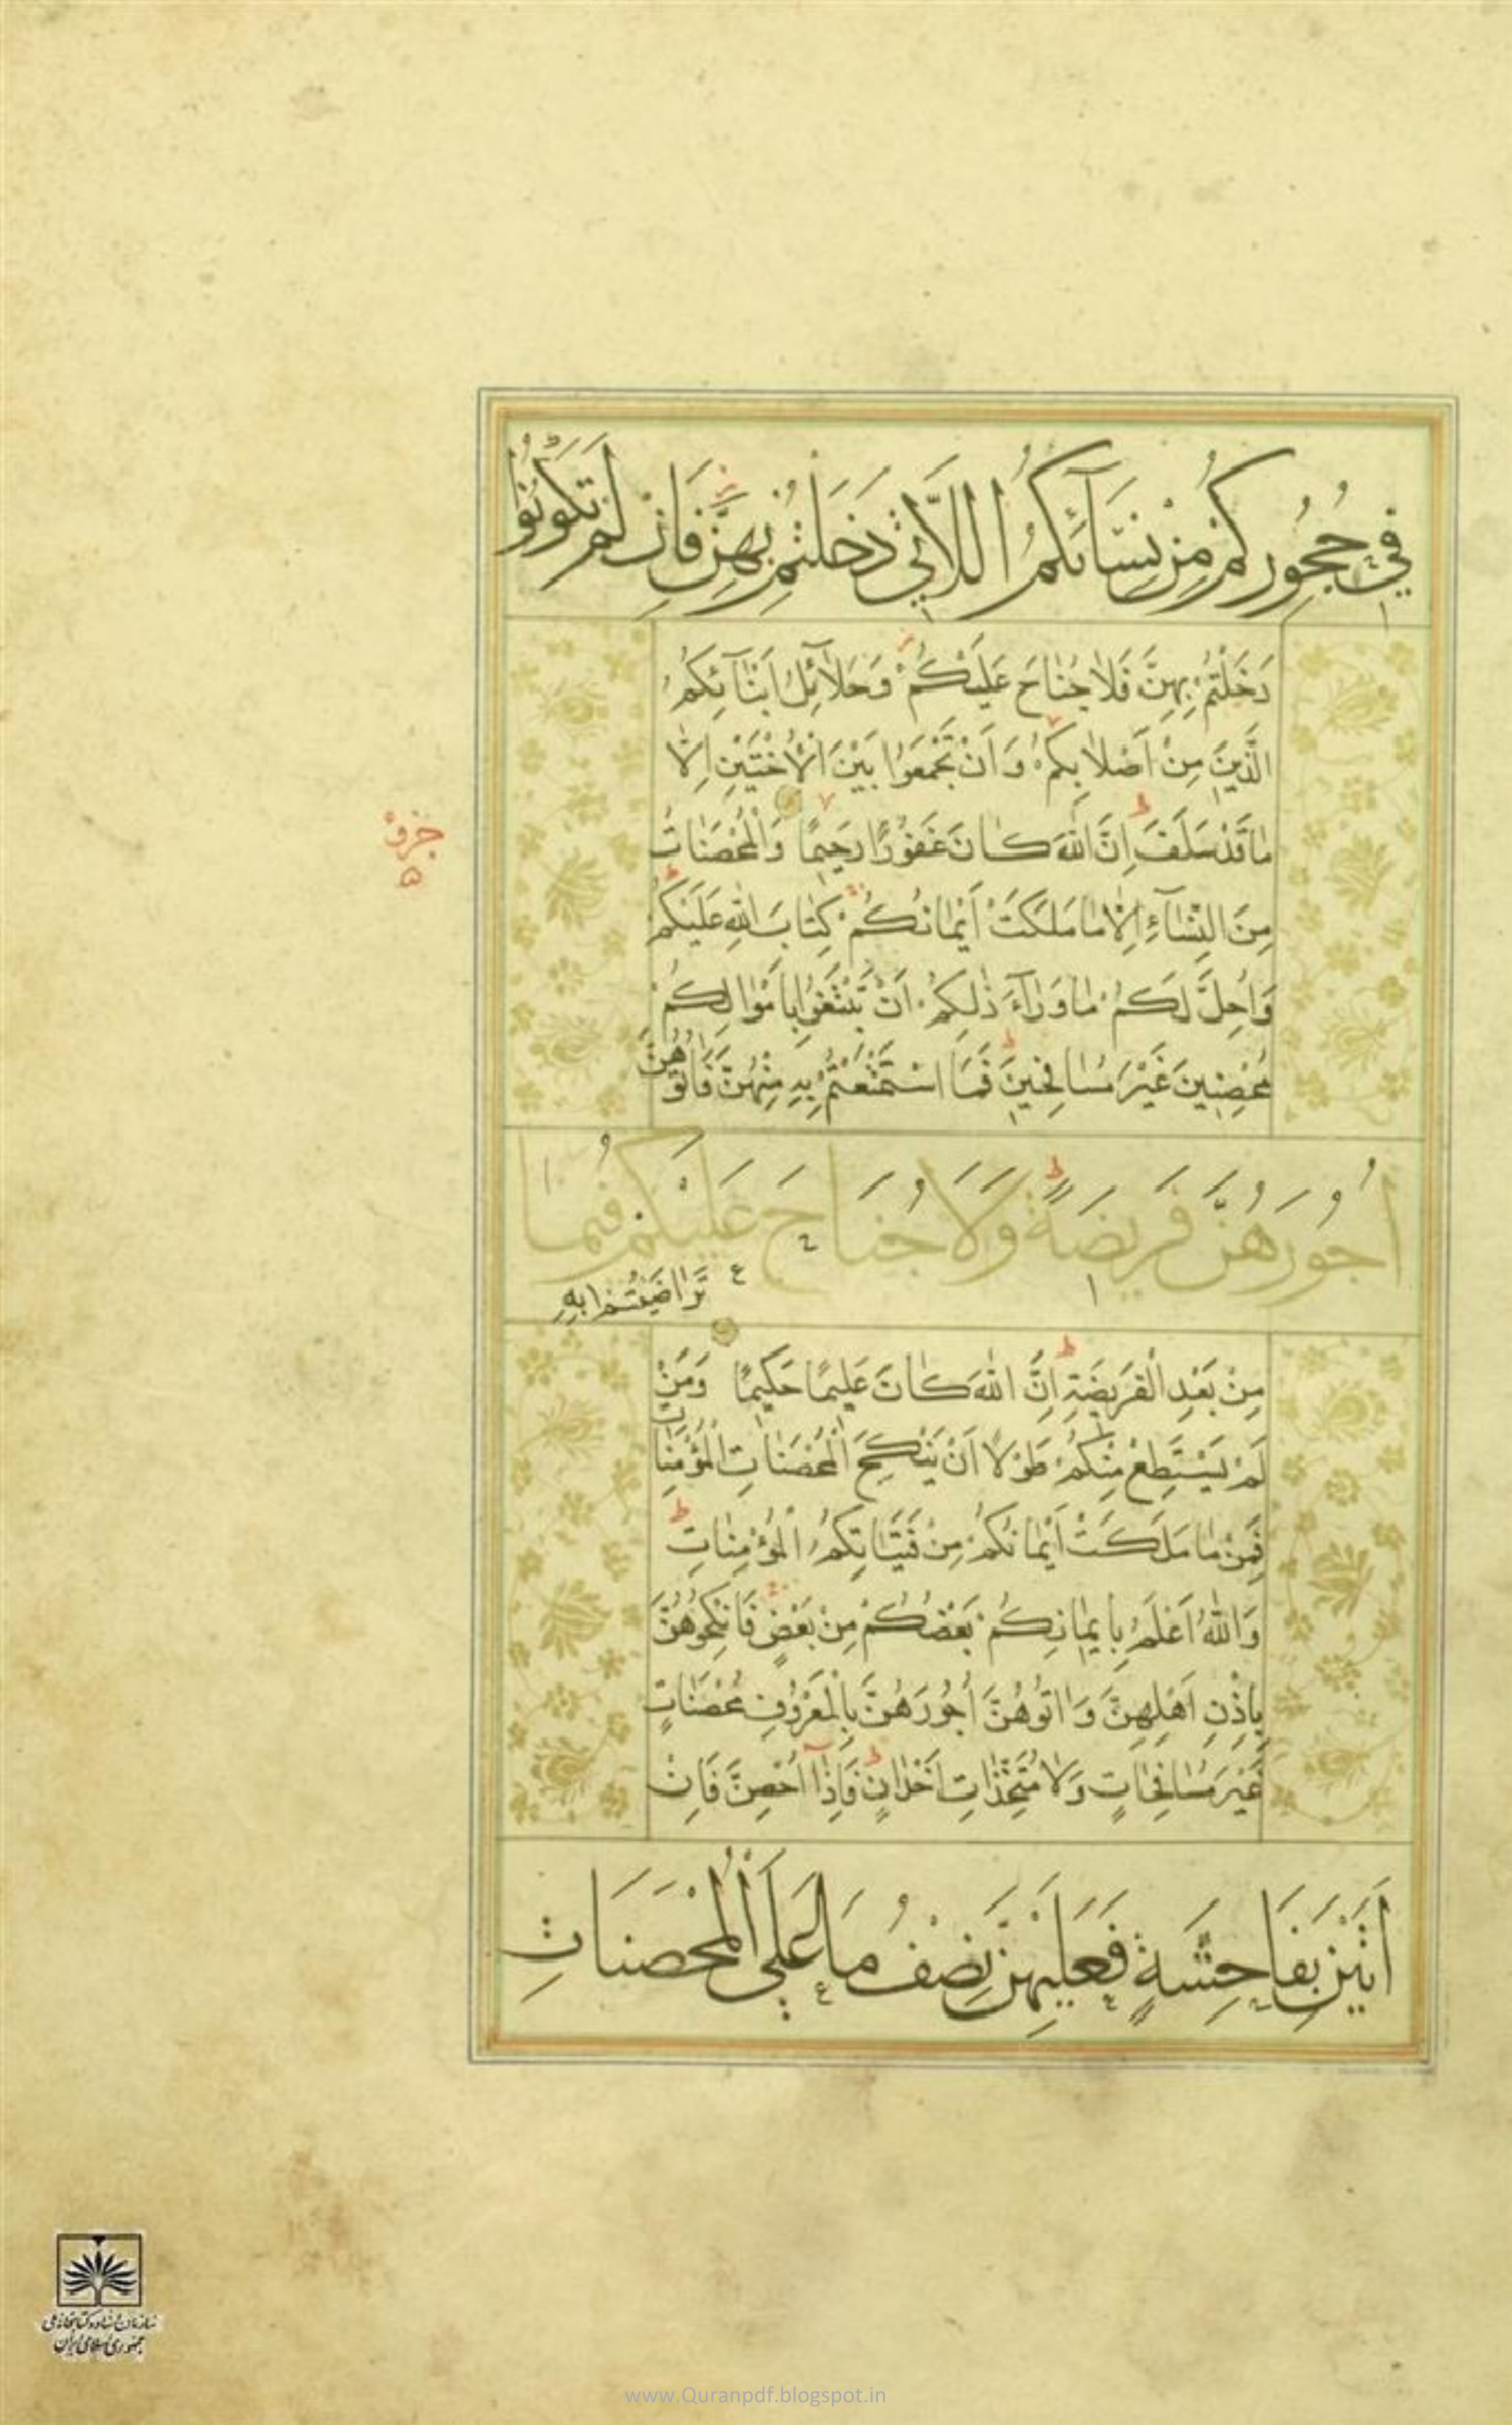 في حُجُورِكُمْ مِنْ نِسَآئِكُمُ اللَّاتي دَخَلْتُمْ بِهِنَّ فَاِنْ لَمْ تَكُونُوا
دَخَلْتُمْ بِهِنَّ فَلاٰ جُنٰاحَ عَلَيْكُمْ وَحَلاٰۤئِلُ اَبْنٰۤائِكُمُ
الَّذينَ مِنْ اَصْلاٰبِكُمْ وَاَنْ تَجْمَعُوا بَيْنَ الْاُخْتَيْنِ اِلاّٰ
مٰا قَدْ سَلَفَ اِنَّ اللّٰهَ كٰانَ غَفُورًا رَحيمًا وَالْمُحْصَنٰاتُ
مِنَ النِّسٰۤاءِ اِلاّٰ مٰا مَلَكَتْ اَيْمٰانُكُمْ كِتٰابَ اللّٰهِ عَلَيْكُمْ
وَاُحِلَّ لَكُمْ مٰا وَرٰۤاءَ ذٰلِكُمْ اَنْ تَبْتَغُوا بِاَمْوٰالِكُمْ
مُحْصِنينَ غَيْرَ مُسٰافِحينَ فَمَا اسْتَمْتَعْتُمْ بِهِ مِنْهُنَّ فَاٰتُوهُنَّ
اُجُورَهُنَّ فَريضَةً وَلَا جُنَاحَ عَلَيْكُمْ فيمَا
تَرٰاضَيْتُمْ بِهِ
مِنْ بَعْدِ الْفَريضَةِ اِنَّ اللّٰهَ كٰانَ عَليمًا حَكيمًا وَمَنْ
لَمْ يَسْتَطِعْ مِنْكُمْ طَوْلًا اَنْ يَنْكِحَ الْمُحْصَنٰاتِ الْمُؤْمِنٰاتِ
فَمِنْ مٰا مَلَكَتْ اَيْمٰانُكُمْ مِنْ فَتَيٰاتِكُمُ الْمُؤْمِنٰاتِ
وَاللّٰهُ اَعْلَمُ بِايمٰانِكُمْ بَعْضُكُمْ مِنْ بَعْضٍ فَانْكِحُوهُنَّ
بِاِذْنِ اَهْلِهِنَّ وَاٰتُوهُنَّ اُجُورَهُنَّ بِالْمَعْرُوفِ مُحْصَنٰاتٍ
غَيْرَ مُسٰافِحٰاتٍ وَلاٰ مُتَّخِذٰاتِ اَخْدٰانٍ فَاِذٰۤا اُحْصِنَّ فَاِنْ
اَتَيْنَ بِفَاحِشَةٍ فَعَلَيْهِنَّ نِصْفُ مَا عَلَي الْمُحْصَنَاتِ
سازمان اسناد و کتابخانه ملی
جمهوری اسلامی ایران
www.Quranpdf.blogspot.in